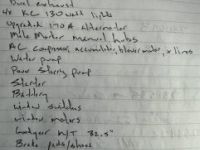 Dual exhaust
4x KC 130 watt lights
Upgraded 170 A alternator
Mile Marker manual hubs
AC compressor, accumulator, blower motor, & lines
Water pump
Power Steering pump
Starter
Battery
window switches
window motors
Goodyear M/T 32.5"
Brake pads/shoes